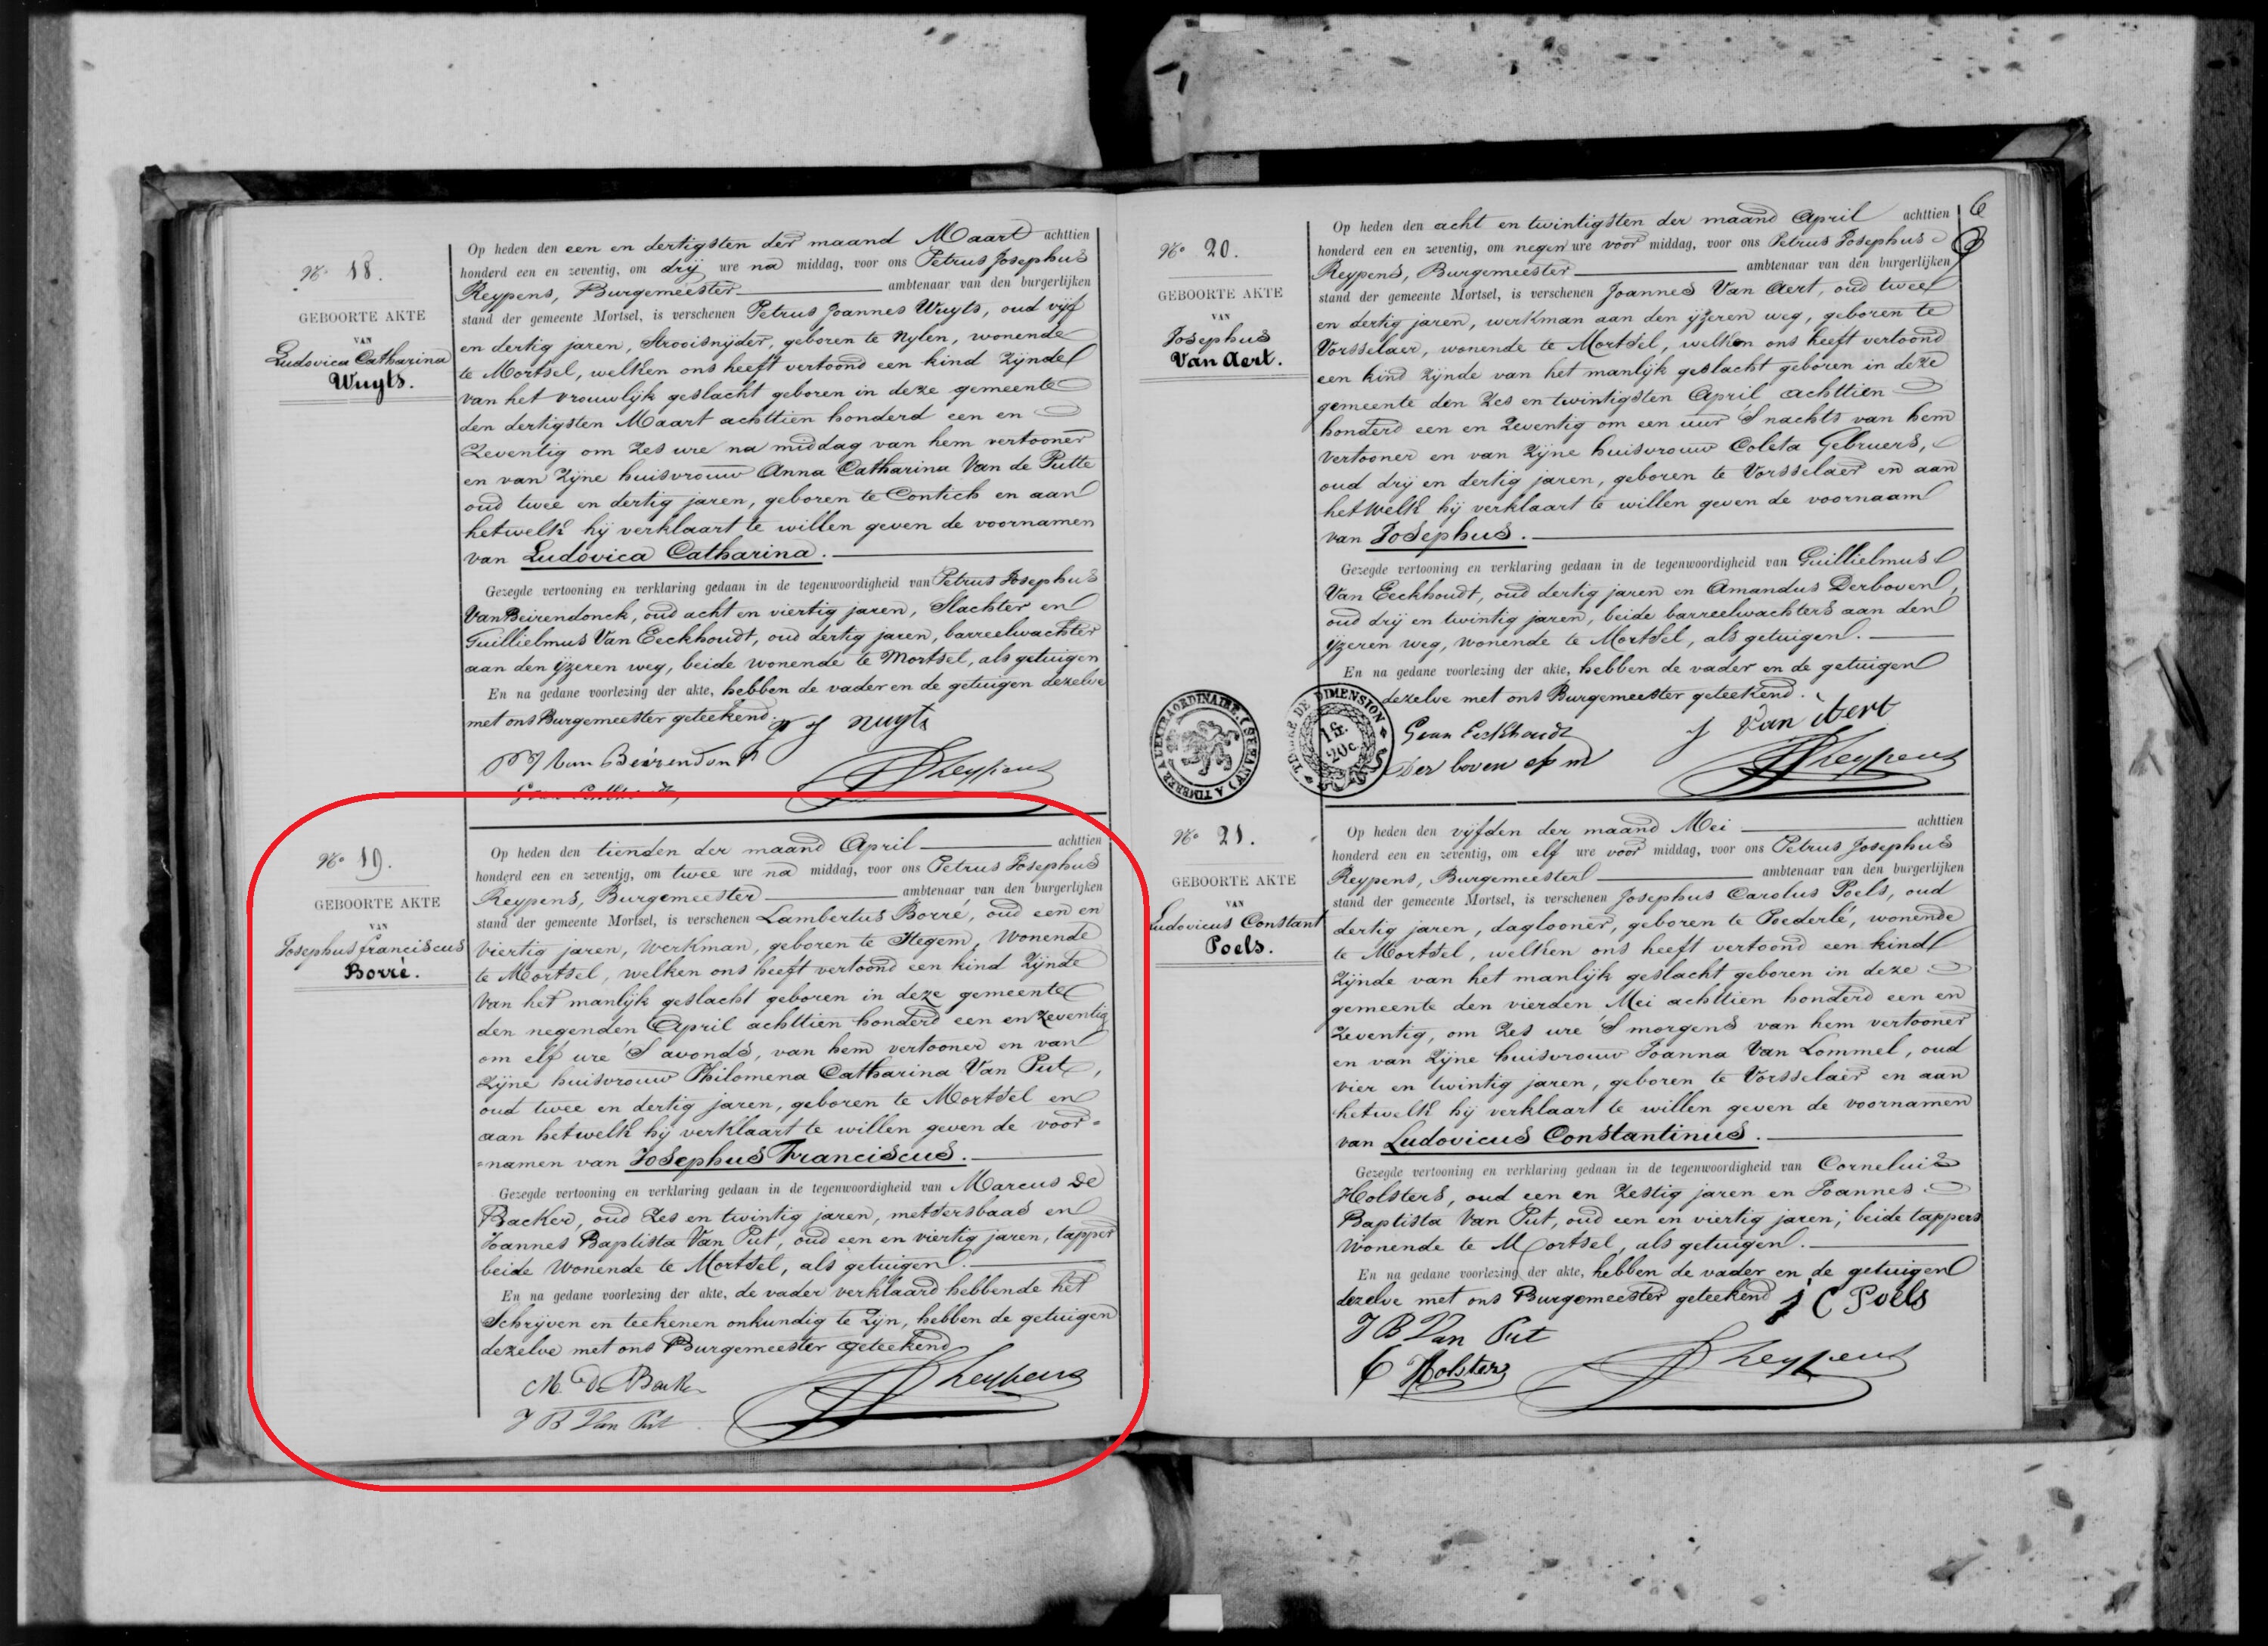 Nº 18.
GEBOORTE AKTE
VAN
Ludovica Catharina
Wuyts.
Op heden den een en dertigsten der maand Maart achttien
honderd een en zeventig, om drij ure na middag, voor ons Petrus Josephus
Reypens, Burgemeester ambtenaar van den burgerlijken
stand der gemeente Mortsel, is verschenen Petrus Joannes Wuyts, oud vijf
en dertig jaren, Strooisnyder, geboren te Nylen, wonende
te Mortsel, welken ons heeft vertoond een kind zijnde
van het vrouwlijk geslacht geboren in deze gemeente
den dertigsten Maart achttien honderd een en
Zeventig om Zes ure na middag van hem vertooner
en van Zijne huisvrouw Anna Catharina Van de Putte
oud twee en dertig jaren, geboren te Contich en aan
hetwelk hij verklaart te willen geven de voornamen
van Ludovica Catharina.
Gezegde vertooning en verklaring gedaan in de tegenwoordigheid van Petrus Josephus
Van Beirendonck, oud acht en viertig jaren, Slachter en
Guillielmus Van Eeckhoudt, oud dertig jaren, barreelwachter
aan den ijzeren weg, beide wonende te Mortsel, als getuigen
En na gedane voorlezing der akte, hebben de vader en de getuigen dezelve
met ons Burgemeester geteekend.
P J Wuyts
P J Van Beirendonk
PJ Reypens
Nº 19.
GEBOORTE AKTE
VAN
Josephus franciscus
Borré.
Op heden den tienden der maand April achttien
honderd een en zeventig, om twee ure na middag, voor ons Petrus Josephus
Reypens, Burgemeester ambtenaar van den burgerlijken
stand der gemeente Mortsel, is verschenen Lambertus Borré, oud een en
viertig jaren, Werkman, geboren te Itegem, Wonende
te Mortsel, welken ons heeft vertoond een kind Zijnde
Van het manlijk geslacht geboren in deze gemeente
den negenden April achttien honderd een en zeventig
om elf ure 'S avonds, van hem vertooner en van
Zijne huisvrouw Philomena Catharina Van Put,
oud twee en dertig jaren, geboren te Mortsel en
aan hetwelk hij verklaart te willen geven de voor=
=namen van Josephus Franciscus.
Gezegde vertooning en verklaring gedaan in de tegenwoordigheid van Marcus De
Backer, oud Zes en twintig jaren, metsersbaas en
Joannes Baptista Van Put, oud een en viertig jaren, tapper
beide Wonende te Mortsel, als getuigen.
En na gedane voorlezing der akte, de vader verklaard hebbende het
Schrijven en teekenen onkundig te Zijn, hebben de getuigen
dezelve met ons Burgemeester geteekend
M. De Backer
J B Van Put
PJ Reypens
6
Nº 20.
GEBOORTE AKTE
VAN
Josephus
Van Aert.
Op heden den acht en twintigsten der maand April achttien
honderd een en zeventig, om negen ure voor middag, voor ons Petrus Josephus
Reypens, Burgemeester ambtenaar van den burgerlijken
stand der gemeente Mortsel, is verschenen Joannes Van Aert, oud twee
en dertig jaren, werkman aan den ijzeren weg, geboren te
Vorsselaer, wonende te Mortsel, welken ons heeft vertoond
een kind zijnde van het manlijk geslacht geboren in deze
gemeente den Zes en twintigsten April achttien
honderd een en Zeventig om een uur 'S nachts van hem
Vertooner en van Zijne huisvrouw Coleta Gebruers,
oud drij en dertig jaren, geboren te Vorsselaer en aan
hetwelk hij verklaart te willen geven de voornaam
van Josephus.
Gezegde vertooning en verklaring gedaan in de tegenwoordigheid van Guillielmus
Van Eeckhoudt, oud dertig jaren en Amandus Derboven,
oud drij en twintig jaren, beide barreelwachters aan den
ijzeren weg, wonende te Mortsel, als getuigen.
En na gedane voorlezing der akte, hebben de vader en de getuigen
dezelve met ons Burgemeester geteekend.
TIMBRE DE DIMENSION
1 fr.
20 c
J Van Aert
G van Eeckhoudt
Der boven
PJ Reypens
Nº 21.
GEBOORTE AKTE
VAN
Ludovicus Constant
Poels.
Op heden den vijfden der maand Mei achttien
honderd een en zeventig, om elf ure voor middag, voor ons Petrus Josephus
Reypens, Burgemeester ambtenaar van den burgerlijken
stand der gemeente Mortsel, is verschenen Josephus Carolus Poels, oud
dertig jaren, daglooner, geboren te Poederlé, wonende
te Mortsel, welken ons heeft vertoond een kind
Zijnde van het manlijk geslacht geboren in deze
gemeente den vierden Mei achttien honderd een en
Zeventig, om Zes ure 'S morgens van hem vertooner
en van Zijne huisvrouw Joanna Van Lommel, oud
vier en twintig jaren, geboren te Vorsselaer en aan
hetwelk hij verklaart te willen geven de voornamen
van Ludovicus Constantinus.
Gezegde vertooning en verklaring gedaan in de tegenwoordigheid van Corneluis
Holsters, oud een en Zestig jaren en Joannes
Baptista Van Put, oud een en viertig jaren, beide tappers
Wonende te Mortsel, als getuigen.
En na gedane voorlezing der akte, hebben de vader en de getuigen
dezelve met ons Burgemeester geteekend
J C Poels
J B Van Put
C Holsters
PJ Reypens